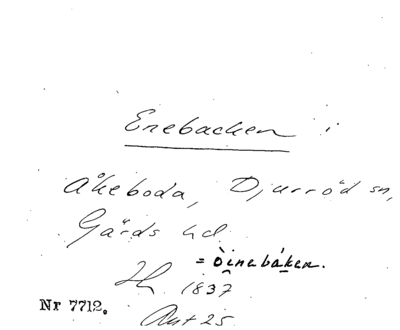 Enebacken i
Åkeboda, Djurröd sn,
Gärds hd
= òinebáken.
1837
Nr 7712.
Ant 25